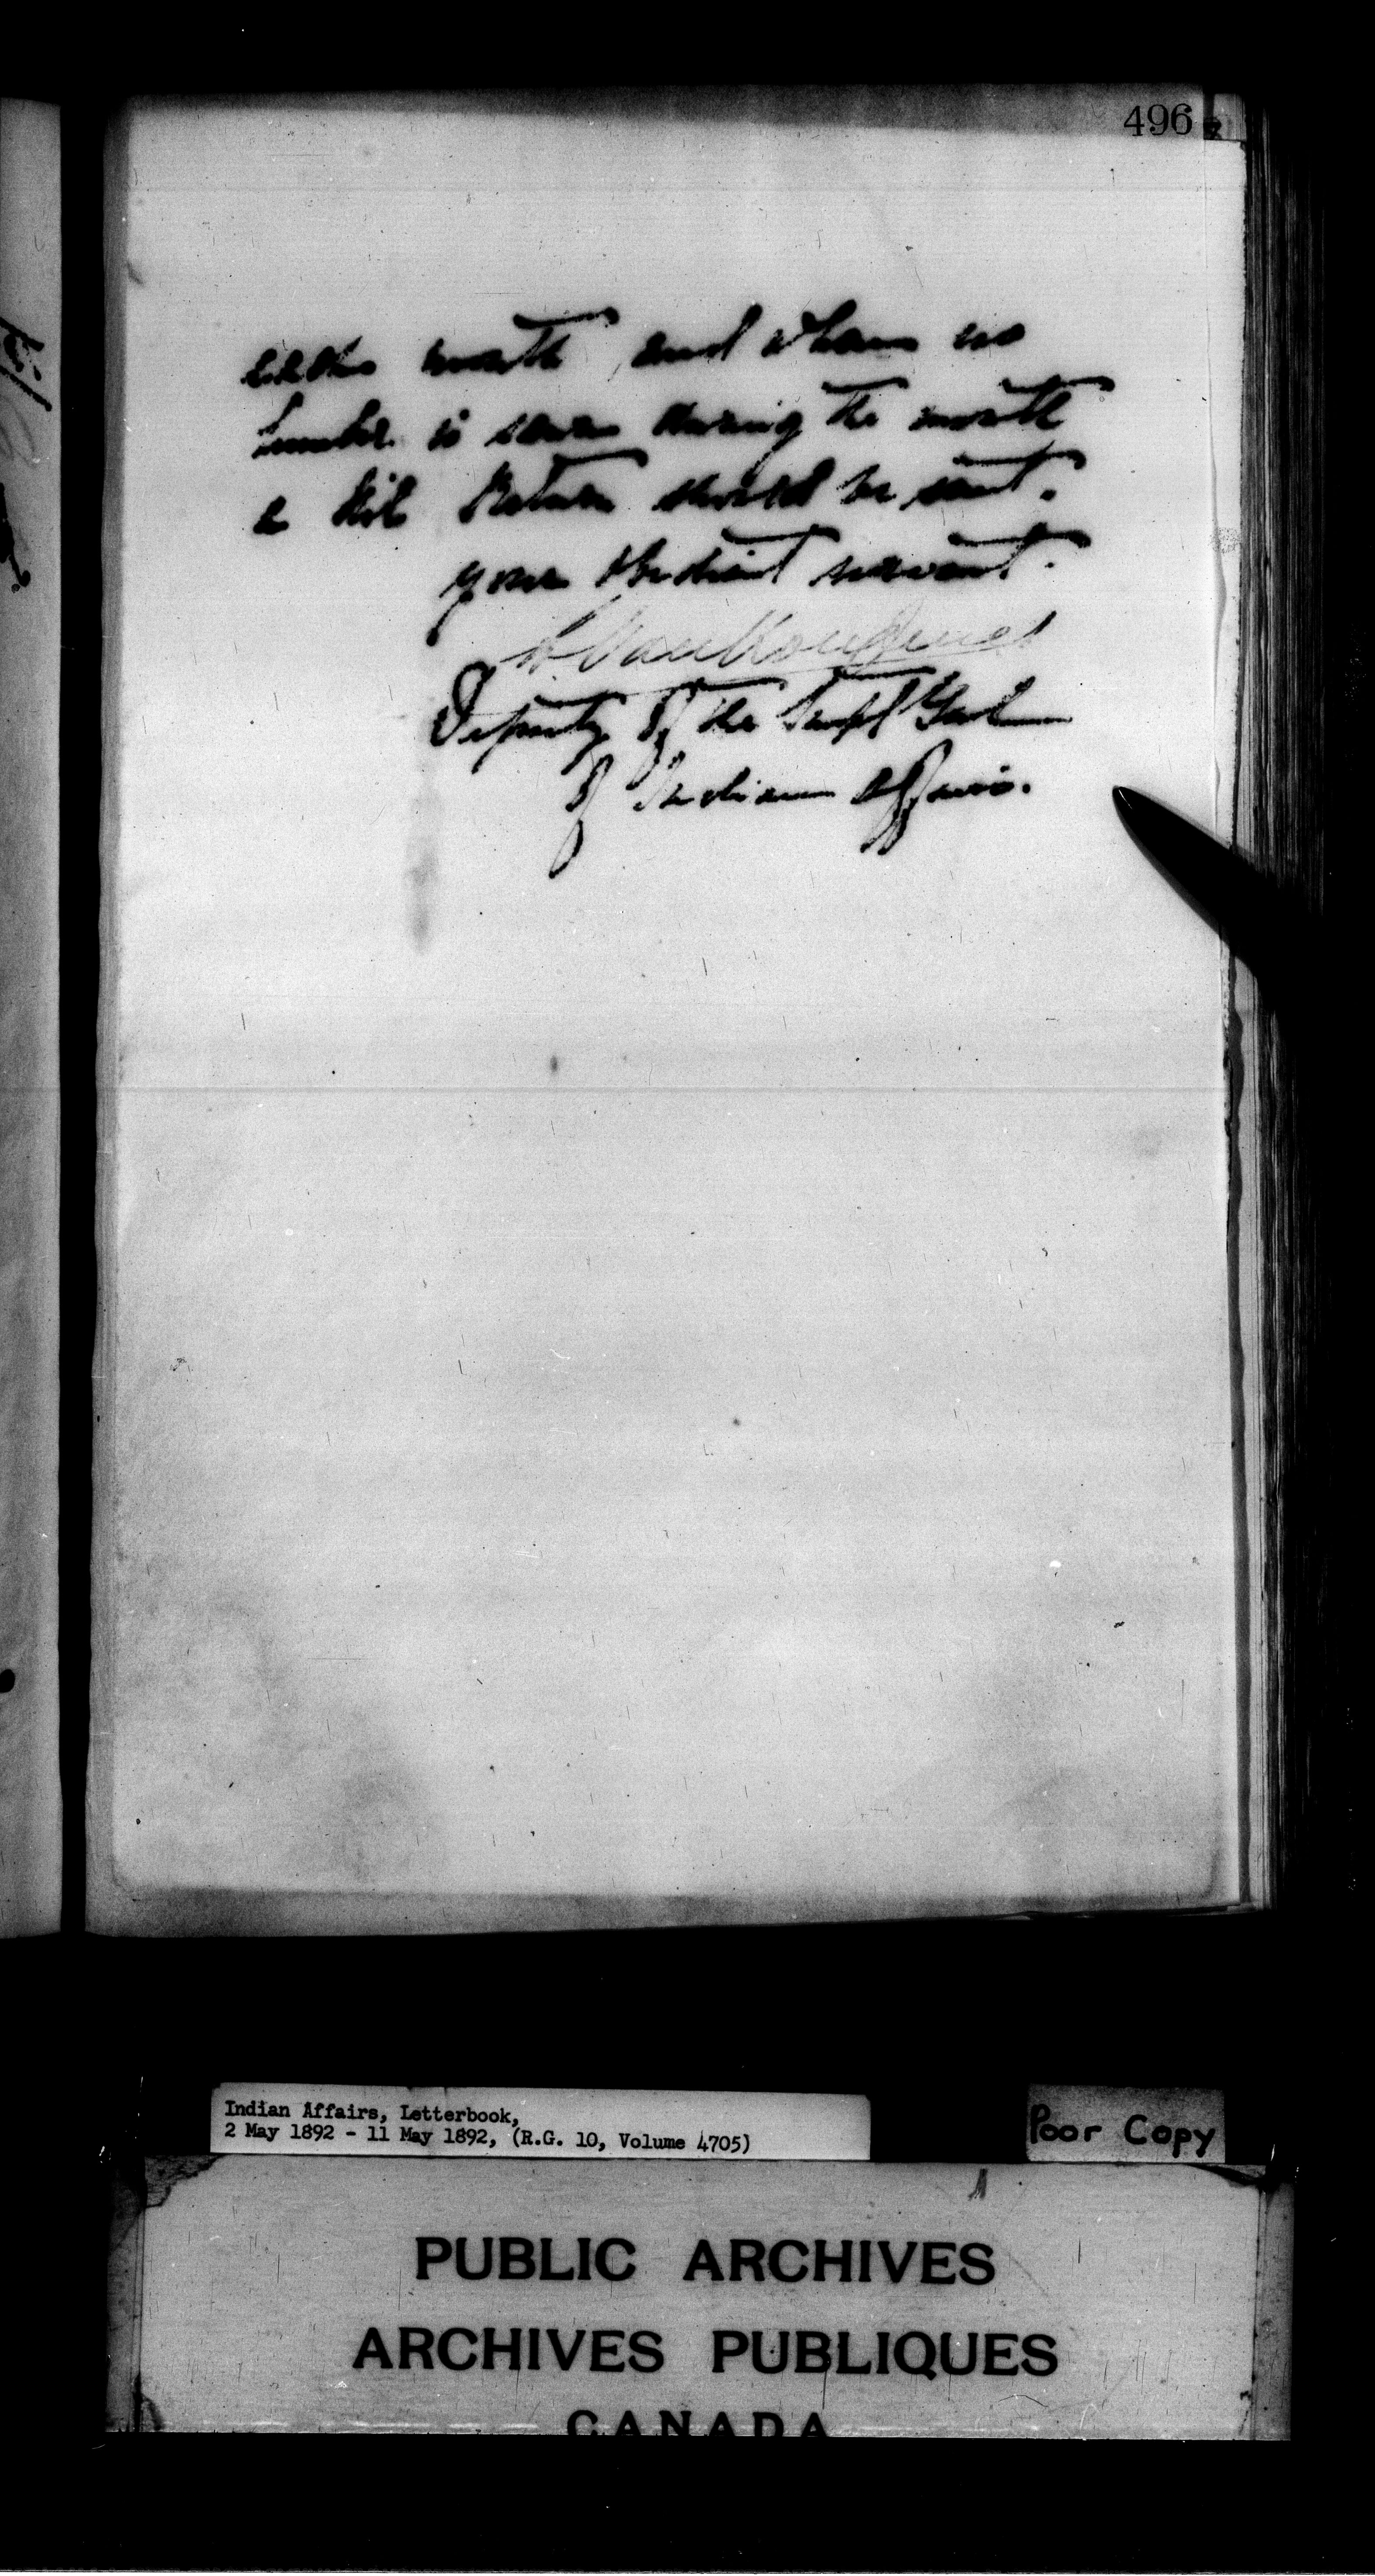 496
each month, and when no
lumber is sawn during the month
a Nil Return should be sent.
Your obedient servant.
L Vankoughnet
Deputy of the Supt Genl
of Indian Affairs.
Indian Affairs, Letterbook,
2 May 1892 - 11 May 1892, (R.G. 10, Volume 4705)
Poor Copy
PUBLIC ARCHIVES
ARCHIVES PUBLIQUES
CANADA